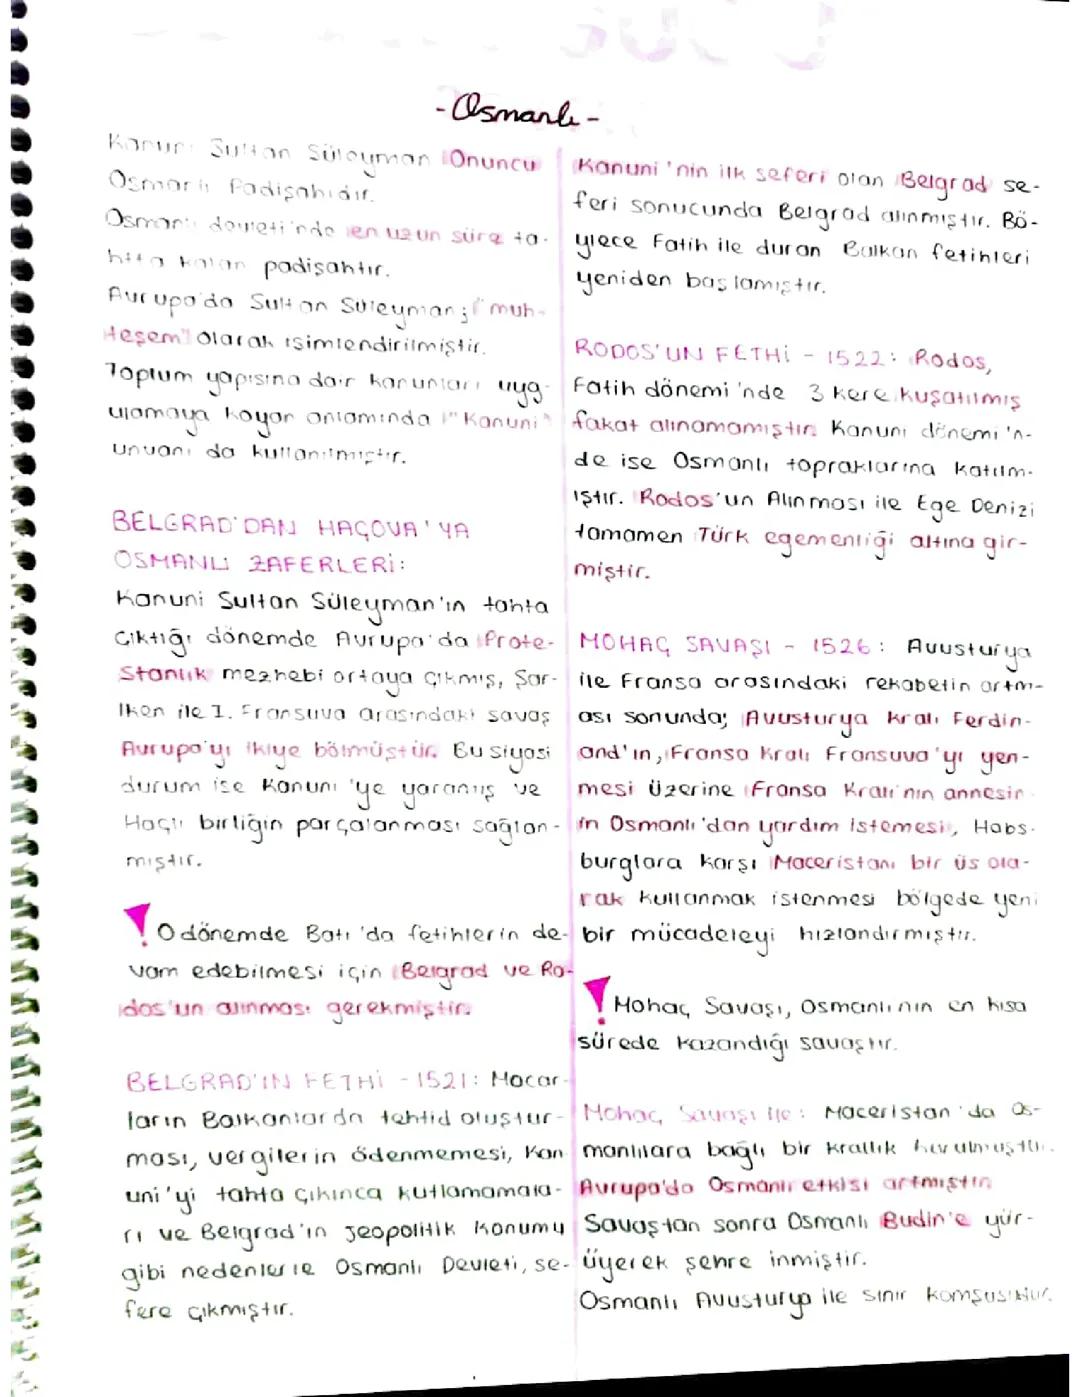 - Osmanlı -
Kanuni Sultan Süleyman Onuncu
Osmanlı Padişahıdır.
Osmanlı devleti'nde en uzun süre ta-
htta kalan padişahtır.
Avrupa'da Sultan Süleyman; "muh-
teşem" olarak isimlendirilmiştir.
Toplum yapısına dair kanunları uyg-
ulamaya koyan anlamında "Kanuni"
unvanı da kullanılmıştır.
BELGRAD'DAN HAÇOVA'YA
OSMANLI ZAFERLERİ:
Kanuni Sultan Süleyman'ın tahta
Çıktığı dönemde Avrupa'da Prote-
stanlık mezhebi ortaya çıkmış, Şar-
lken ile I. Fransuva arasındaki savaş
Avrupa'yı ikiye bölmüştür. Bu siyasi
durum ise Kanuni'ye yaramış ve
Haçlı birliğin parçalanması sağlan-
mıştır.
! O dönemde Batı'da fetihlerin de-
vam edebilmesi için Belgrad ve Ro-
dos'un alınması gerekmiştir.
BELGRAD'IN FETHİ - 1521: Macar-
ların Balkanlarda tehtid oluştur-
ması, vergilerin ödenmemesi, Kan
uni'yi tahta çıkınca kutlamamala-
rı ve Belgrad'ın jeopolitik konumu
gibi nedenlerle Osmanlı Devleti, se-
fere çıkmıştır.
Kanuni'nin ilk seferi olan Belgrad se-
feri sonucunda Belgrad alınmıştır. Bö-
ylece Fatih ile duran Balkan fetihleri
yeniden başlamıştır.
RODOS'UN FETHİ - 1522: Rodos,
Fatih dönemi'nde 3 kere kuşatılmış
fakat alınamamıştır. Kanuni dönemi'n-
de ise Osmanlı topraklarına katılm-
ıştır. Rodos'un Alınması ile Ege Denizi
tamamen Türk egemenliği altına gir-
miştir.
MOHAÇ SAVAŞI - 1526: Avusturya
ile Fransa arasındaki rekabetin artm-
ası sonunda; Avusturya Kralı Ferdin-
and'ın, Fransa Kralı Fransuva'yı yen-
mesi üzerine Fransa Kralı'nın annesin
in Osmanlı'dan yardım istemesi, Habs-
burglara karşı Macaristanı bir üs ola-
rak kullanmak istenmesi bölgede yeni
bir mücadeleyi hızlandırmıştır.
! Mohaç Savaşı, Osmanlının en kısa
sürede kazandığı savaştır.
Mohaç Savaşı ile: Macaristan'da Os-
manlılara bağlı bir krallık kurulmuştur.
Avrupa'da Osmanlı etkisi artmıştır.
Savaştan sonra Osmanlı Budin'e yür-
üyerek şehre inmiştir.
Osmanlı Avusturya ile sınır komşusudur.